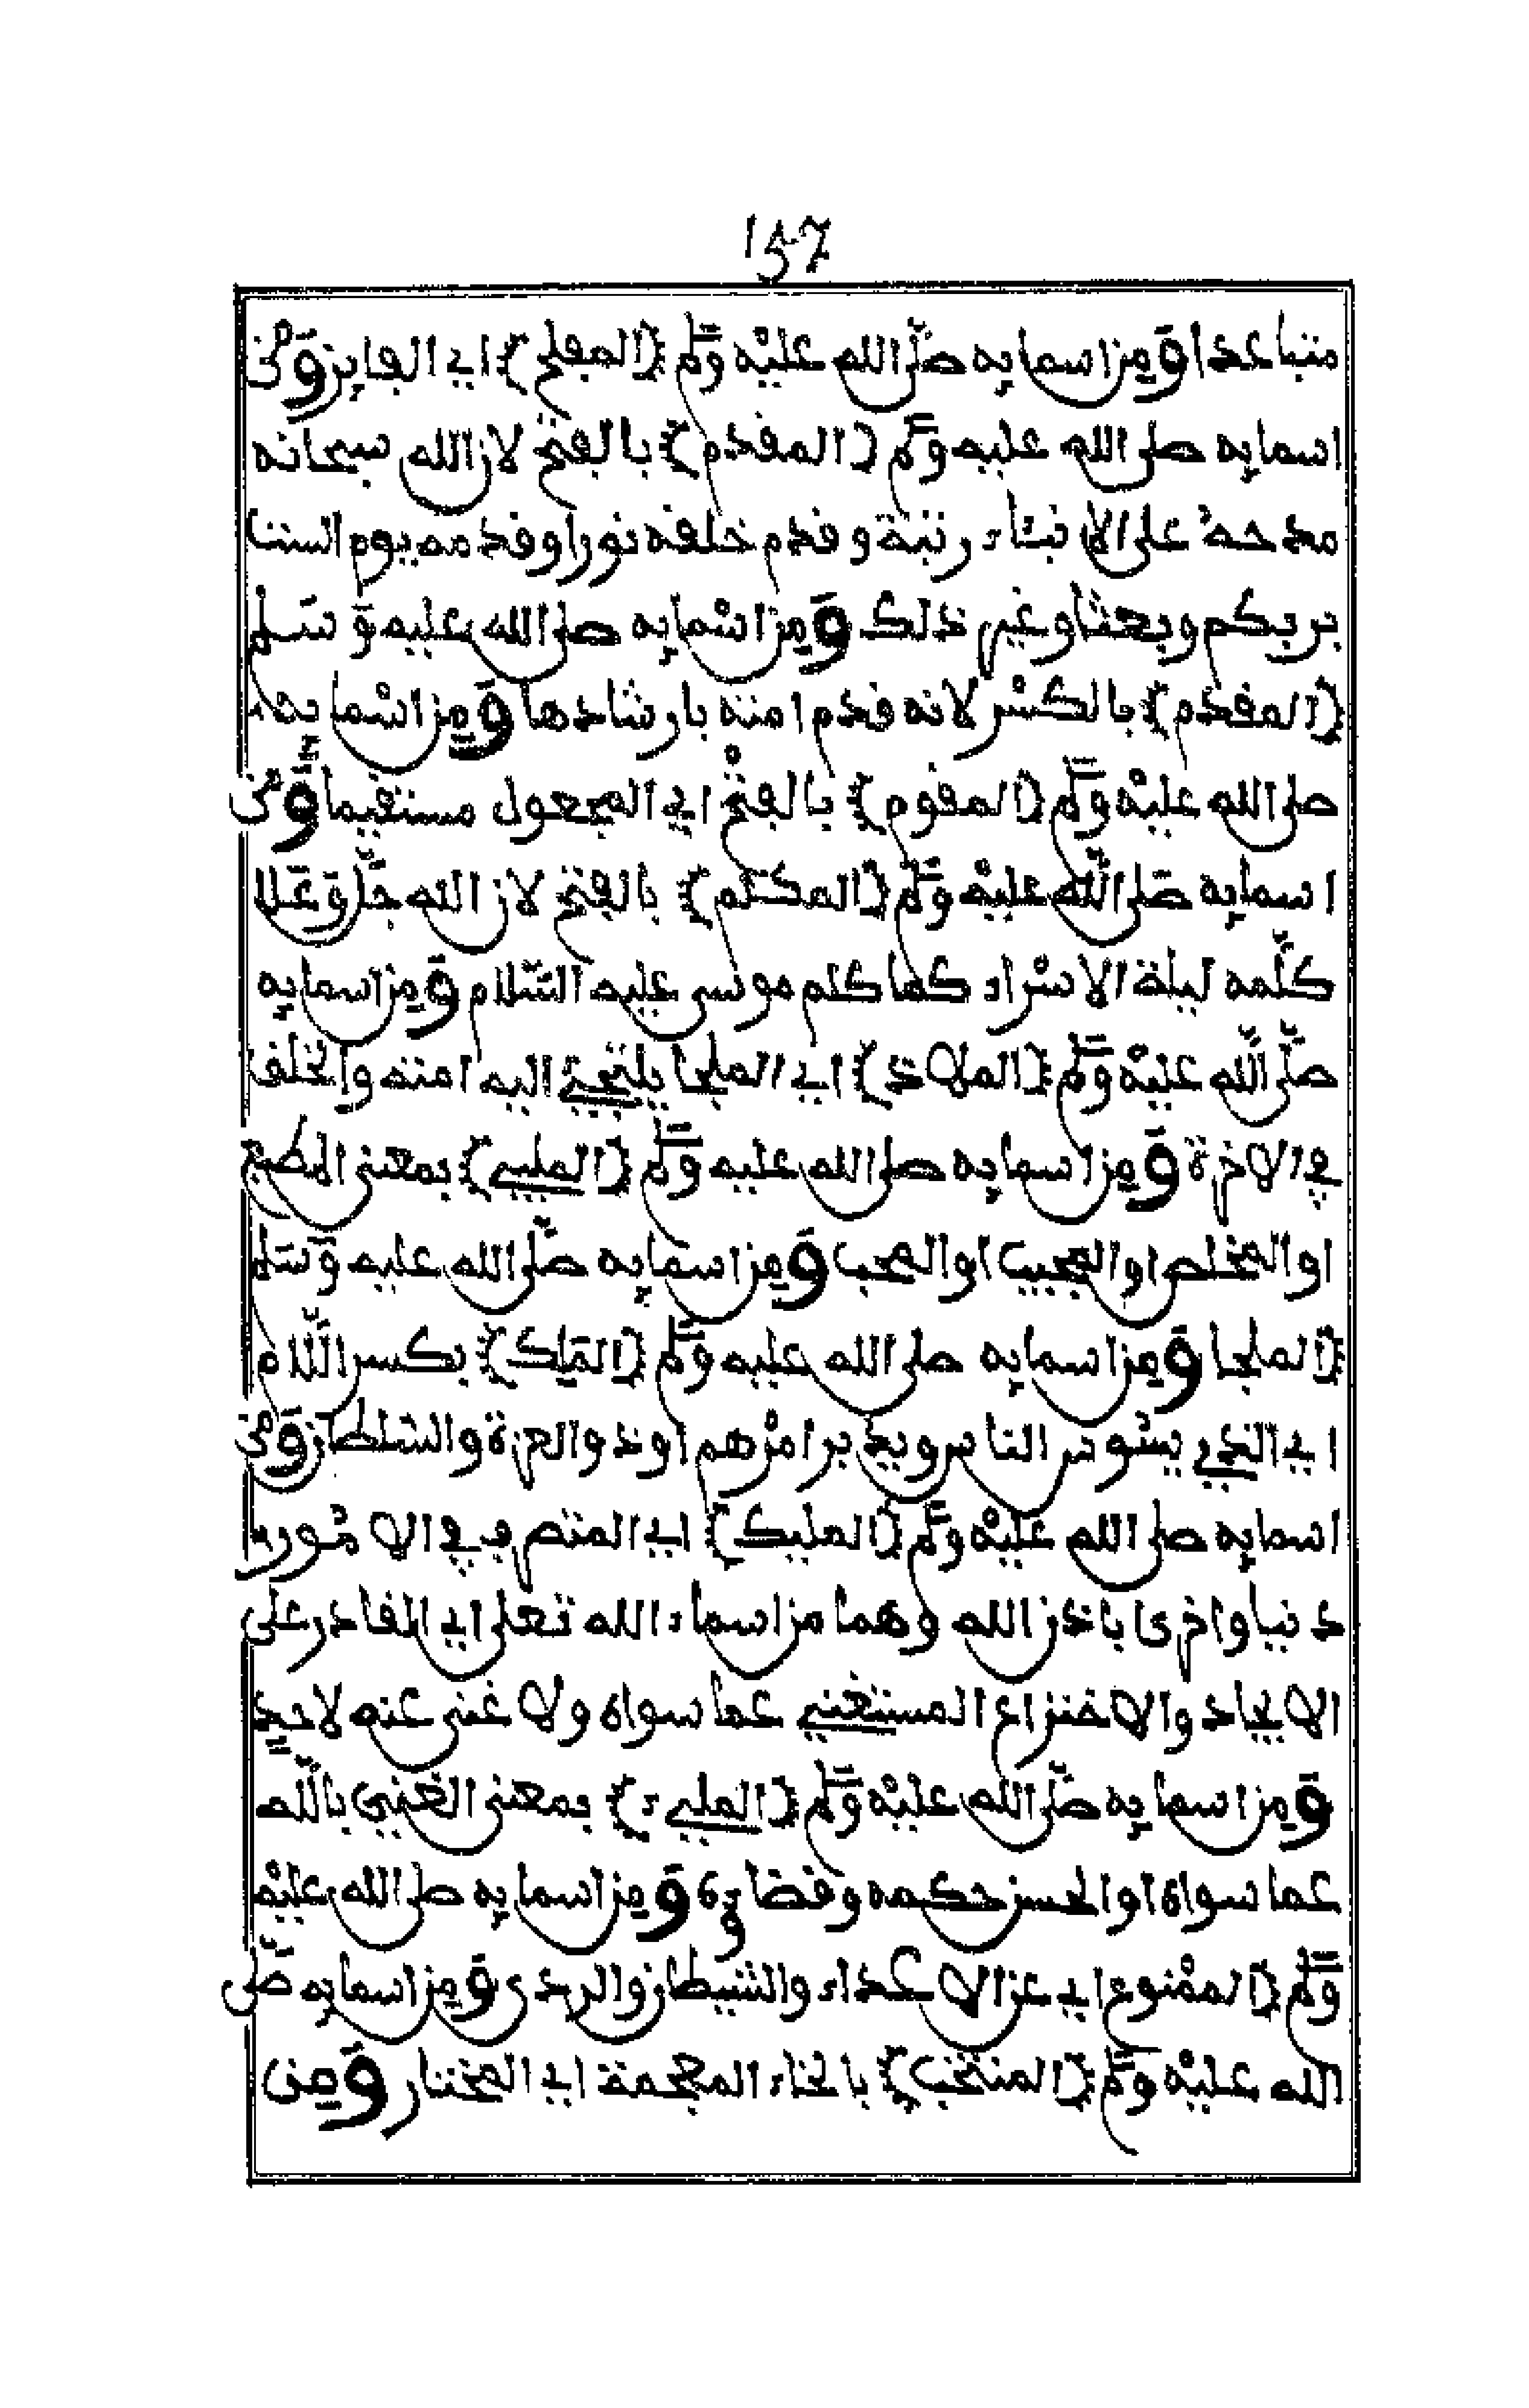 157
متباعدا وَمِن اسمايِه صلّى الله عليْه وَسَلّم (المفلح) اي الفايز وَمِن
اسمايِه صلى الله عليه وَسَلّم (المقدم) بالفتح لان الله سبحانه
مدحهُ على الانبياء رتبة وقدم خلقه نورا وقدمه يوم الست
بربكم وبعثا وغير ذلك وَمِن اسْمايِه صلى الله عليه وَسَلم
(المقدم) بالكسْر لانه قدم امته بارشادها وَمِن اسْمايه
صلى الله عليْه وَسَلّم (المقوم) بالفتْح اي المجعول مستقيما وَمِن
اسمايِه صَلى اللّه عليْه وَسَلّم (المكلم) بالفتح لان الله جلَّ وَعَلا
كلّمه ليلة الاسْراء كما كلم موسى عليه السّلام وَمِن اسمايِه
صلّى اللّه عليْه وَسَلّم (الملاذ) اي الملجا يلتجئ اليه امته والخلق
في الاخرة وَمِن اسمايِه صلى الله عليه وَسَلّم (الملبي) بمعنى المطيع
او المخلص او المجيب او المحب وَمِن اسمايِه صلّى الله عليه وَسَلم
(الملجا وَمِن اسمايِه صلى الله عليه وَسَلّم (المَلِك) بكسر اللّام
اي الذي يسُوس الناس ويدبر امرْهم او ذو العزة والسّلطان وَمِن
اسمايِه صلى الله عليْه وَسَلّم (المليك) اي المتصرف في الامُور
دنيا واخرى باذن الله وهما من اسماء الله تعلى اي القادر على
الايجاد والاختراع المستغني عما سواه ولا غنى عنه لاحدٍ
وَمِن اسمايِه صلّى الله عليْه وَسَلّم (المليء) بمعنى الغني باللّه
عما سواه او الحسن حكمه وقضاؤه وَمِن اسمايِه صلى الله عليْه
وَسَلّم (الممْنوع اي عن الاعداء والشيطان والردى وَمِن اسمايِه صلّى
الله عليْه وَسَلّم (المنتخب) بالخاء المعجمة اي المختار وَمِن